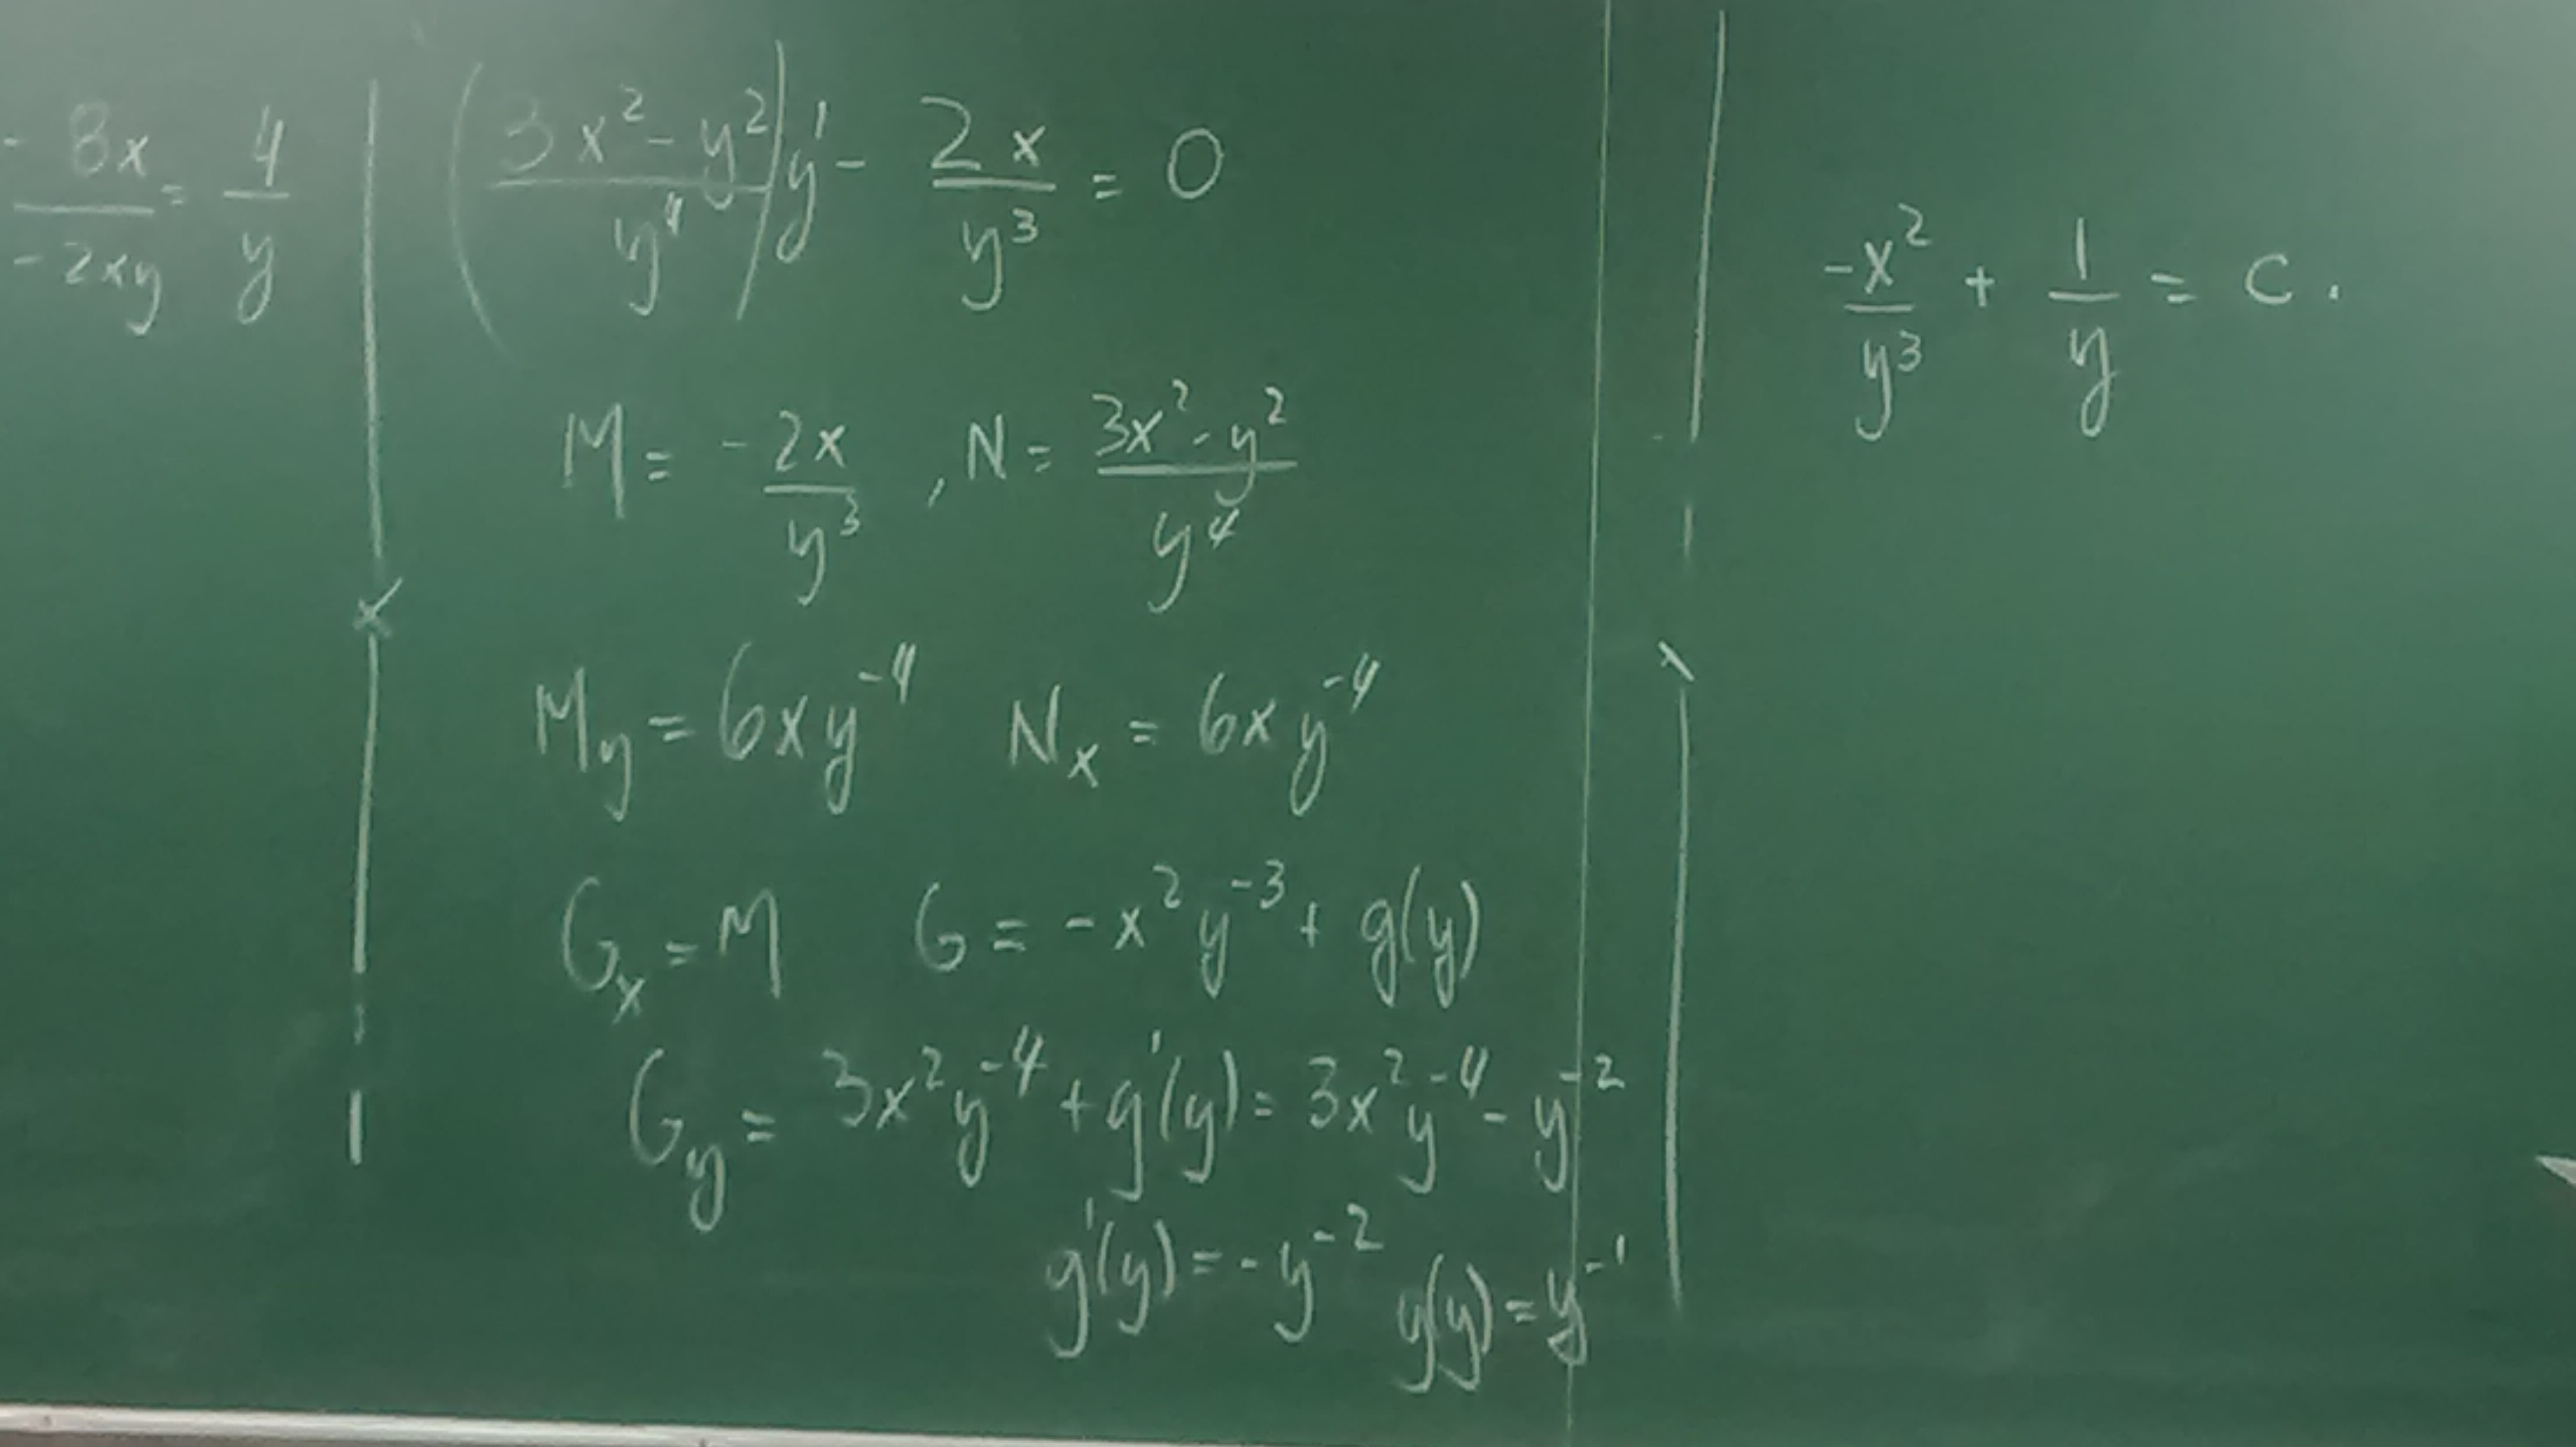 - 8x / -2xy = 4 / y
((3x² - y²) / y⁴) y' - 2x / y³ = 0
M = -2x / y³ , N = (3x² - y²) / y⁴
M_y = 6xy⁻⁴ N_x = 6xy⁻⁴
G_x = M G = -x²y⁻³ + g(y)
G_y = 3x²y⁻⁴ + g'(y) = 3x²y⁻⁴ - y⁻²
g'(y) = -y⁻² g(y) = y⁻¹
-x² / y³ + 1 / y = C.